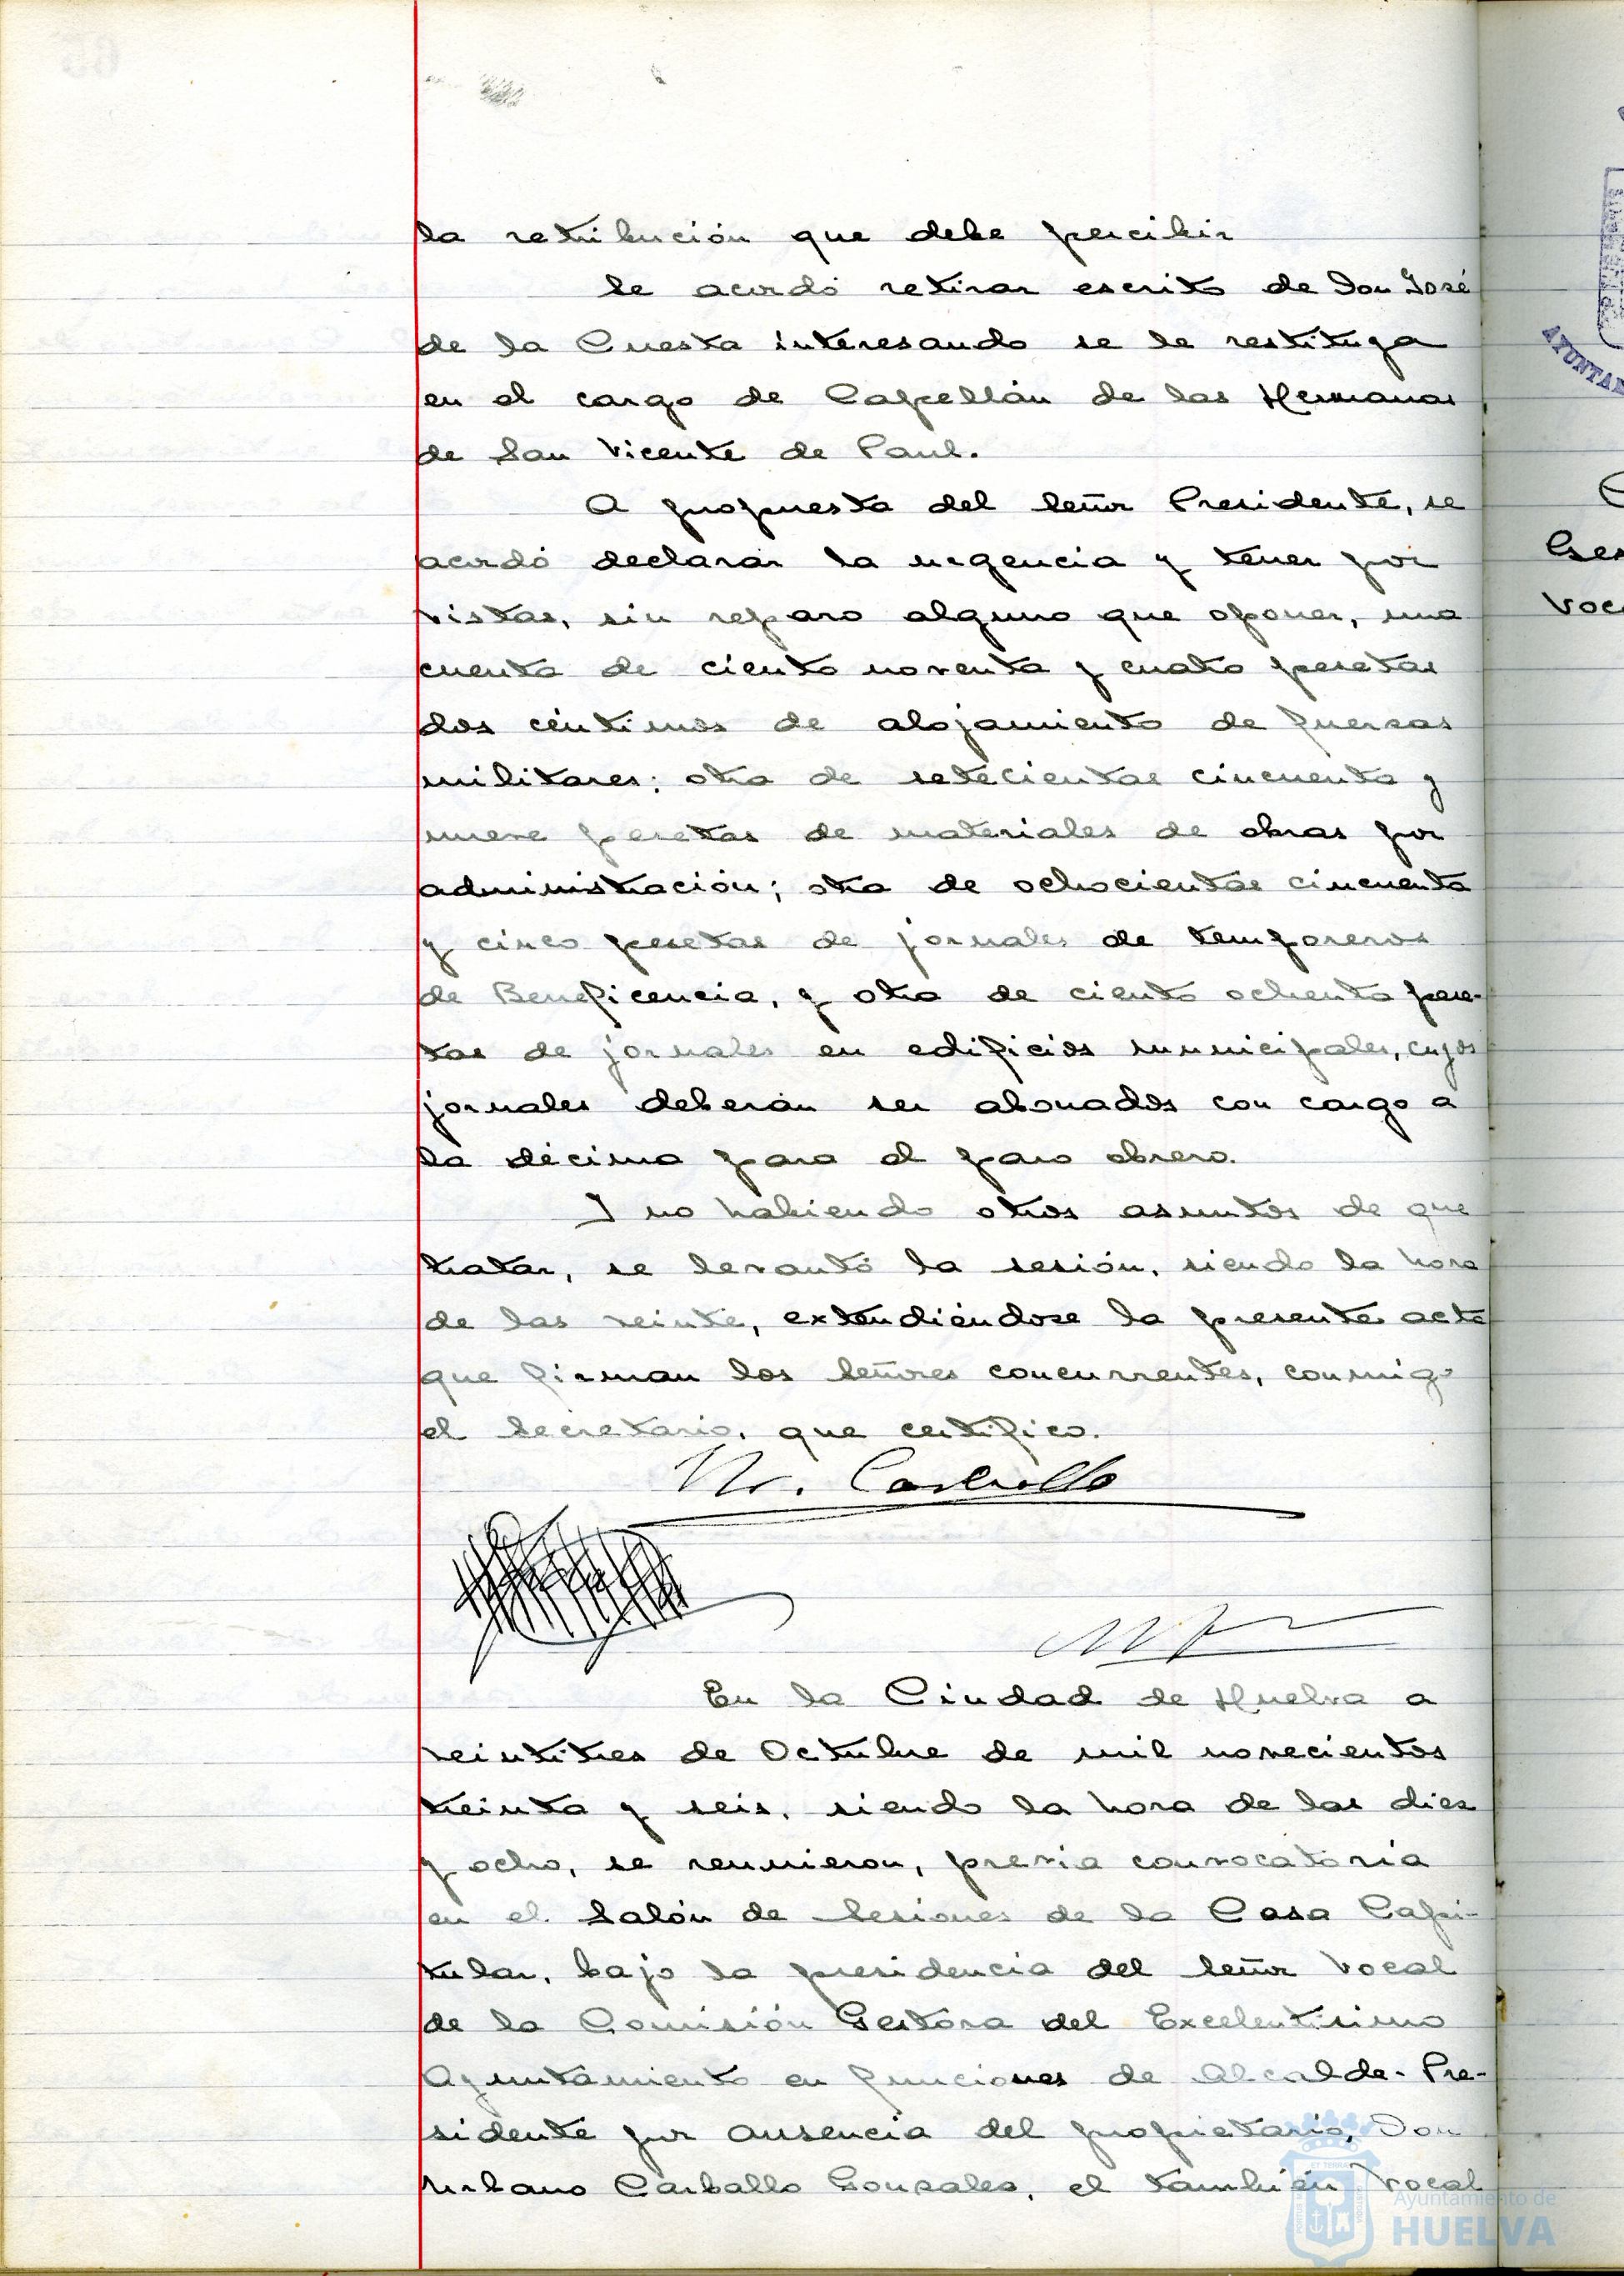 la retribución que debe percibir
Se acordó retirar escrito de Don José
de la Cuesta interesando se le restituya
en el cargo de Capellán de las Hermanas
de San Vicente de Paul.
A propuesta del Señor Presidente, se
acordó declarar la urgencia y tener por
vistas, sin reparo alguno que oponer, una
cuenta de ciento noventa y cuatro pesetas
dos céntimos de alojamiento de fuerzas
militares; otra de setecientas cincuenta y
nueve pesetas de materiales de obras por
administración; otra de ochocientas cincuenta
y cinco pesetas de jornales de temporeros
de Beneficencia, y otra de ciento ochenta pese-
tas de jornales en edificios municipales, cuyos
jornales deberán ser abonados con cargo a
la décima para el paro obrero.
Y no habiendo otros asuntos de que
tratar, se levantó la sesión, siendo la hora
de las veinte, extendiéndose la presente acta
que firman los Señores concurrentes, conmigo
el Secretario, que certifico.
Carballo
En la Ciudad de Huelva a
veintitres de Octubre de mil novecientos
treinta y seis, siendo la hora de las diez
y ocho, se reunieron, previa convocatoria
en el Salón de Sesiones de la Casa Capi-
tular, bajo la presidencia del Señor Vocal
de la Comisión Gestora del Excelentísimo
Ayuntamiento en funciones de Alcalde-Pre-
sidente por ausencia del propietario, Don
Urbano Carballo Gonzales, el también Vocal
Ayuntamiento de
HUELVA